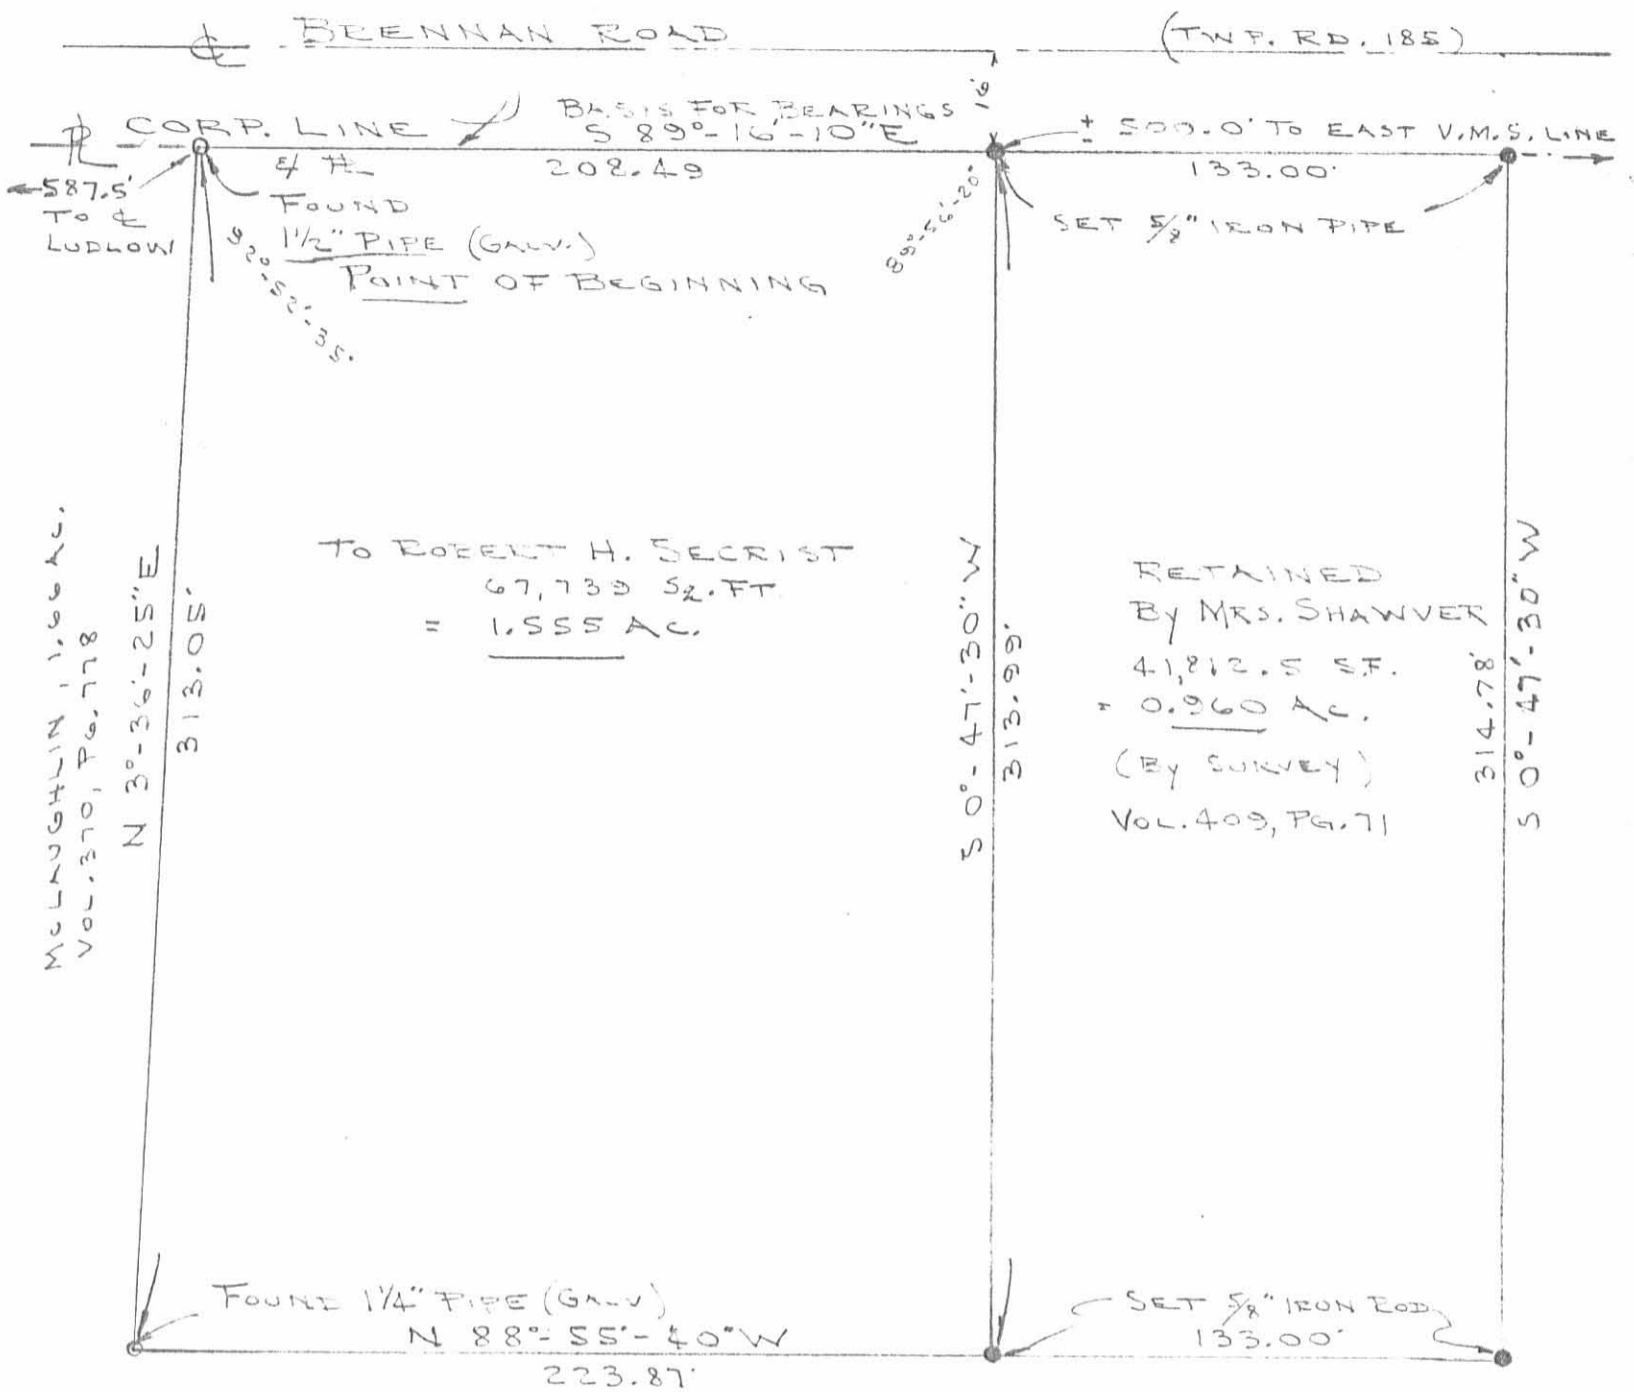 ℄ BRENNAN ROAD (TWP. RD. 185)
16'
BASIS FOR BEARINGS
℄ CORP. LINE S 89°-16'-10"E ± 500.0' TO EAST V.M.S. LINE
& ℄ 208.49 133.00'
587.5'
TO ℄
LUDLOW
FOUND
1½" PIPE (GALV.)
POINT OF BEGINNING
92°-52'-35"
89°-56'-20"
SET 5/8" IRON PIPE
MCLAUGHLIN, 1.66 AC.
VOL. 370, PG. 778
N 3°-36'-25"E
313.05'
TO ROBERT H. SECRIST
67,739 SQ. FT.
= 1.555 AC.
S 0°-47'-30"W
313.99'
RETAINED
BY MRS. SHAWVER
41,812.5 S.F.
= 0.960 AC.
(BY SURVEY)
VOL. 409, PG. 71
314.78'
S 0°-47'-30"W
FOUND 1¼" PIPE (GALV)
N 88°-55'-40"W
223.87'
SET 5/8" IRON ROD
133.00'